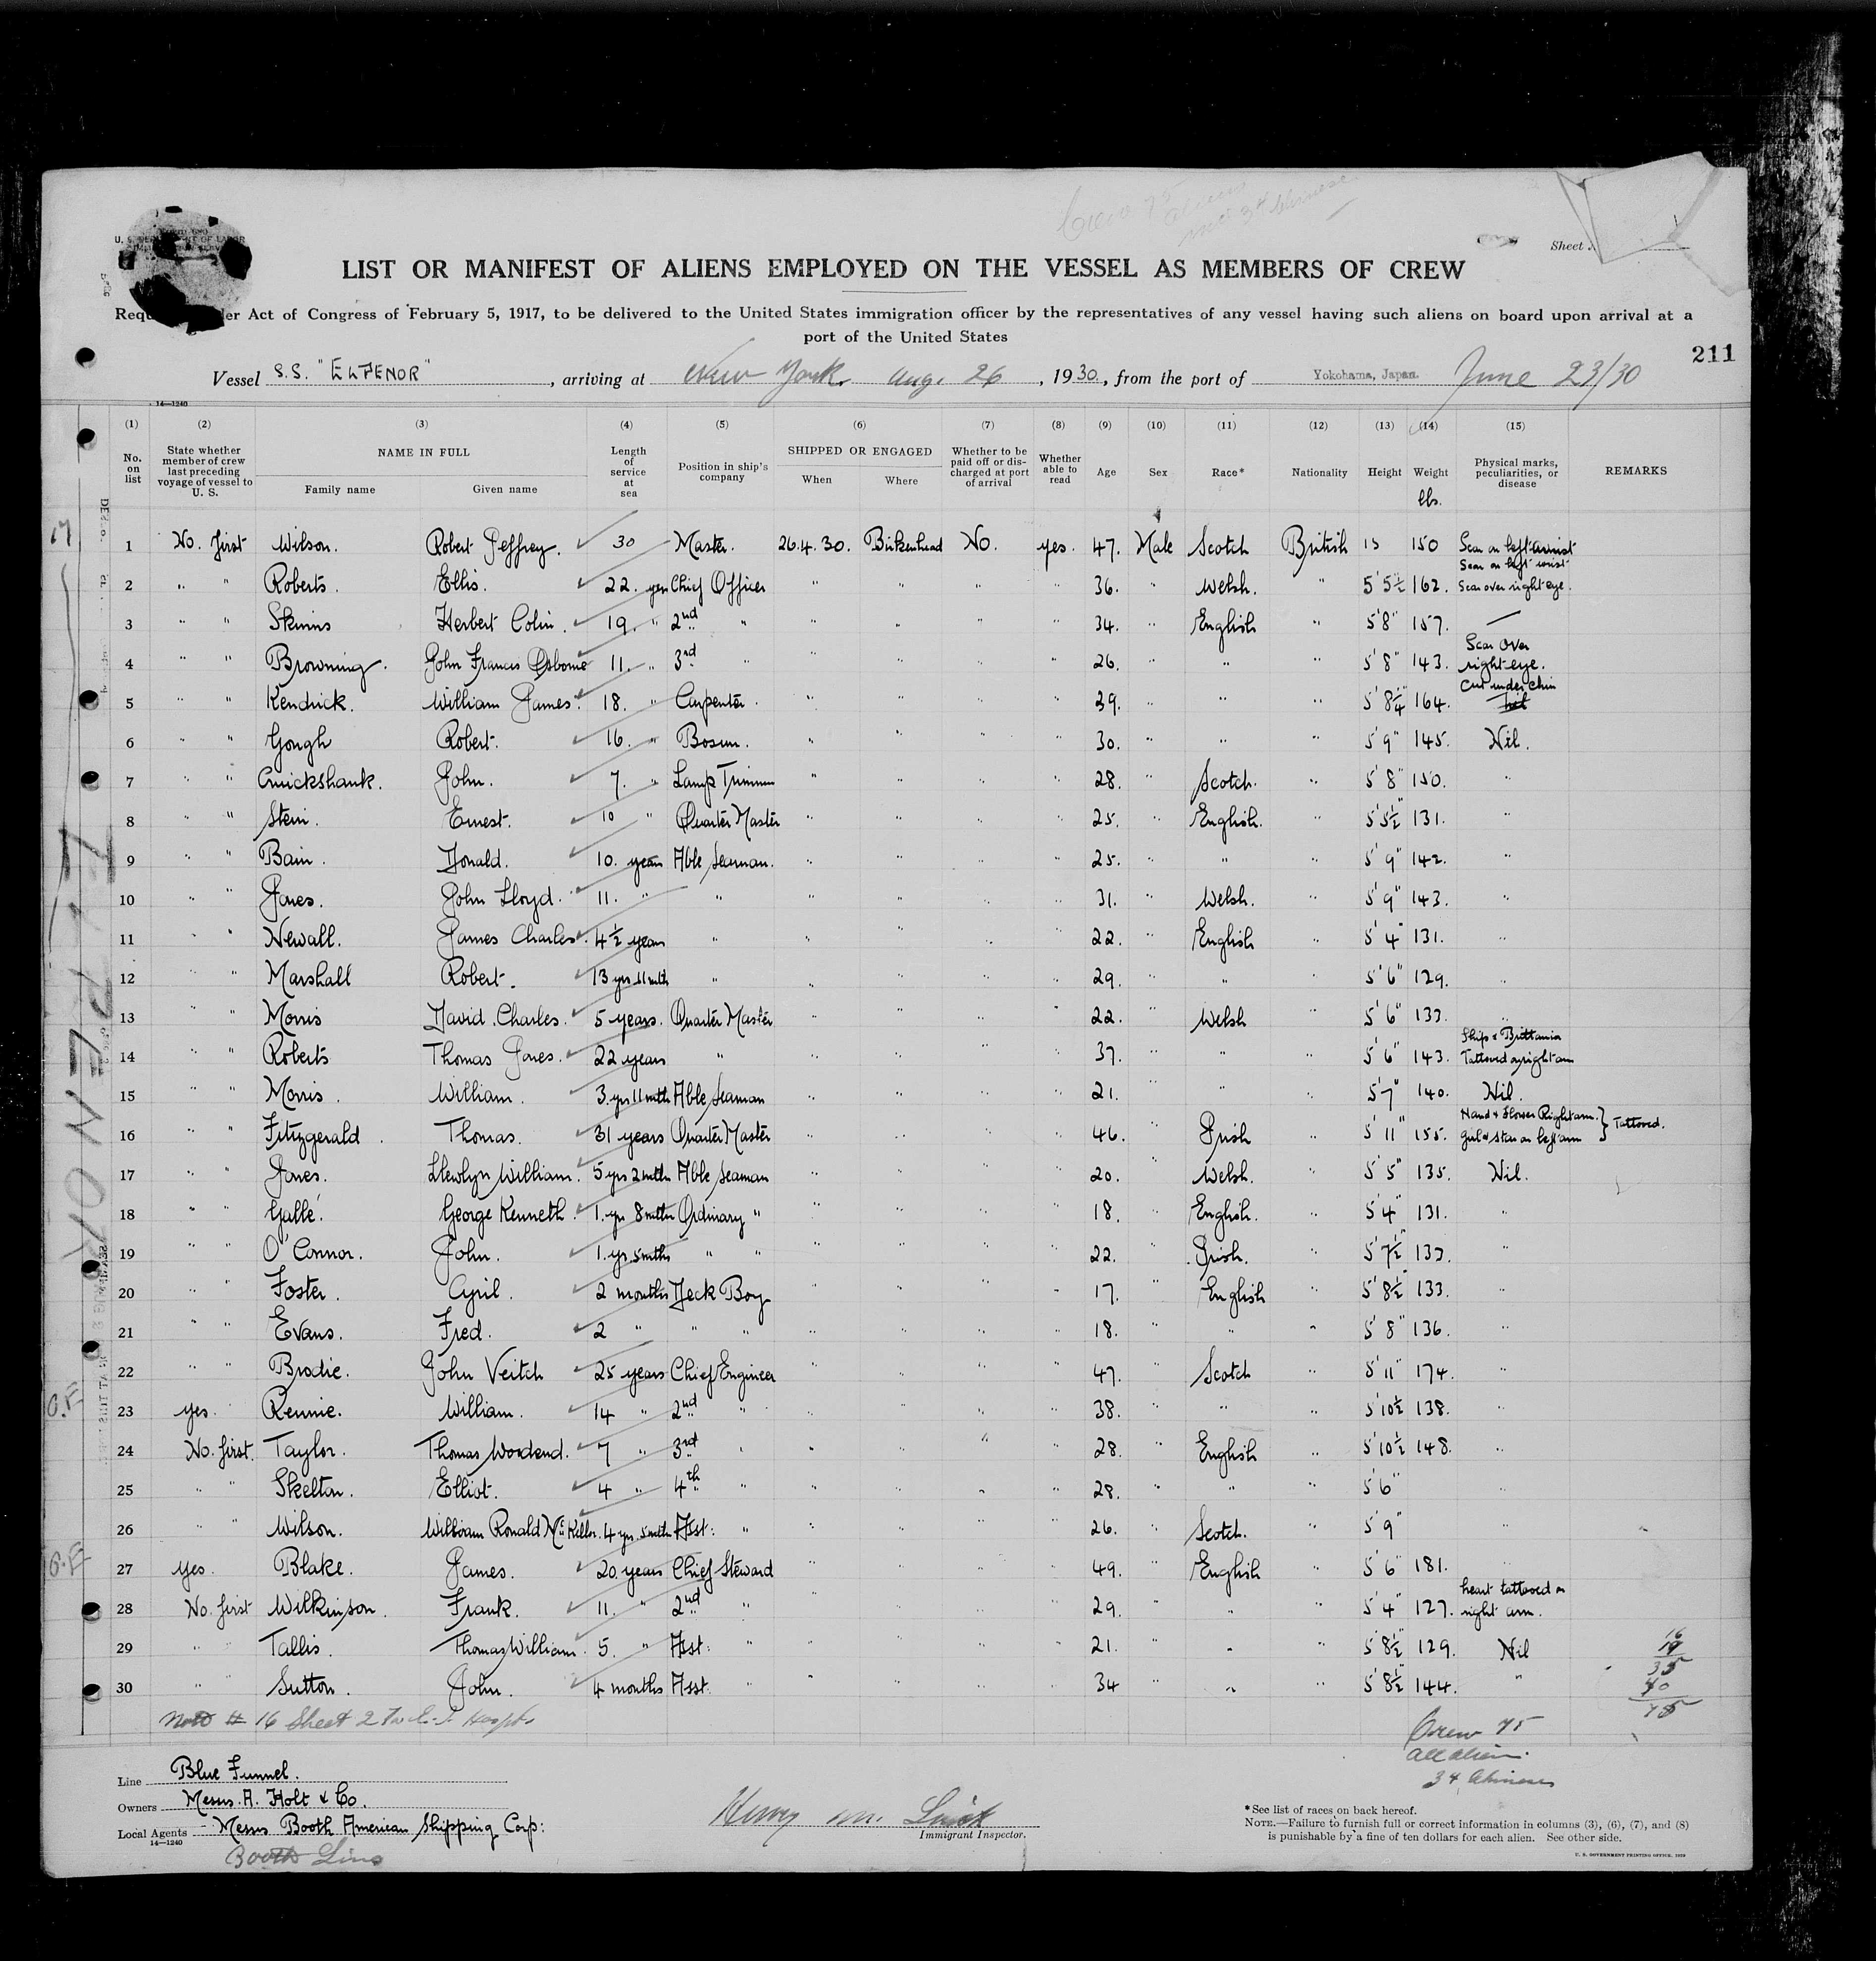 Crew 75
aliens
incl 34 Chinese
Sheet
LIST OR MANIFEST OF ALIENS EMPLOYED ON THE VESSEL AS MEMBERS OF CREW
Act of Congress of February 5, 1917, to be delivered to the United States immigration officer by the representatives of any vessel having such aliens on board upon arrival at a
port of the United States
211
Vessel S.S. "ELPENOR", arriving at New York. Aug. 26, 1930, from the port of Yokohama, Japan. June 23/30
14—1240
(1) (2) (3) (4) (5) (6) (7) (8) (9) (10) (11) (12) (13) (14) (15)
No. on list State whether member of crew last preceding voyage of vessel to U. S. NAME IN FULL Family name Given name Length of service at sea Position in ship's company SHIPPED OR ENGAGED When Where Whether to be paid off or discharged at port of arrival Whether able to read Age Sex Race* Nationality Height Weight lbs. Physical marks, peculiarities, or disease REMARKS
1 No. first Wilson. Robert Jeffrey. 30 Master. 26.4.30. Birkenhead No. yes. 47. Male Scotch British 150 Scar on left wrist
2 " " Roberts. Ellis. 22. yrs Chief Officer " " " " 36. " Welsh. " 5'5½ 162. Scar on left wrist Scar over right eye.
3 " " Skinns Herbert Colin. 19. " 2nd " " " " " 34. " English " 5'8" 157. —
4 " " Browning. John Francis Osborne 11. " 3rd " " " " " 26. " " " 5'8" 143. Scar over right eye.
5 " " Kendrick. William James. 18. " Carpenter. " " " " 39. " " " 5'8¼" 164. Cut under chin
6 " " Gough Robert. 16. " Bosun. " " " " 30. " " " 5'9" 145. Nil.
7 " " Cruickshank. John. 7. " Lamp Trimmer " " " " 28. " Scotch. " 5'8" 150. "
8 " " Stein. Ernest. 10 " Quarter Master " " " " 25. " English. " 5'5½" 131. "
9 " " Bain. Donald. 10. years Able Seaman. " " " " 25. " " " 5'9" 142. "
10 " " Jones. John Lloyd. 11. " " " " " " 31. " Welsh. " 5'9" 143. "
11 " " Newall. James Charles. 4½ years " " " " " 22. " English " 5'4" 131. "
12 " " Marshall Robert. 13 yrs 11 mths " " " " " 29. " " " 5'6" 129. "
13 " " Morris David Charles. 5 years. Quarter Master " " " " 22. " Welsh " 5'6" 133. "
14 " " Roberts Thomas Jones. 22 years " " " " " 37. " " " 5'6" 143. Ship & Brittania Tattooed on right arm
15 " " Morris. William. 3 yrs 11 mths Able Seaman " " " " 21. " " " 5'7" 140. Nil.
16 " " Fitzgerald. Thomas. 31 years Quarter Master " " " " 46. " Irish " 5'11" 155. Hand & Flower Right arm. Girl & Star on left arm } Tattooed.
17 " " Jones. Llewlyn William. 5 yrs 2 mths Able Seaman " " " " 20. " Welsh. " 5'5" 135. Nil.
18 " " Gallé. George Kenneth. 1. yr 8 mths Ordinary " " " " " 18. " English. " 5'4" 131. "
19 " " O'Connor. John. 1. yr. 5 mths " " " " " " 22. " Irish. " 5'7½" 133. "
20 " " Foster. Cyril. 2 months Deck Boy " " " " 17. " English " 5'8½" 133. "
21 " " Evans. Fred. 2 " " " " " " " 18. " " " 5'8" 136. "
22 " " Brodie. John Veitch 25 years Chief Engineer " " " " 47. " Scotch " 5'11" 174. "
23 yes. Rennie. William. 14 " 2nd " " " " " 38. " " " 5'10½ 138. "
24 No. first. Taylor. Thomas Woodend. 7 " 3rd " " " " " 28. " English " 5'10½" 148. "
25 " " Skelton. Elliot. 4 " 4th " " " " " 28. " " " 5'6" "
26 " " Wilson. William Ronald McKellor. 4 yrs. 5 mths Asst: " " " " " 26. " Scotch. " 5'9" "
27 yes. Blake. James. 20 years Chief Steward " " " " 49. " English " 5'6" 181. "
28 No. first Wilkinson. Frank. 11. " 2nd " " " " " 29. " " " 5'4" 127. heart tattooed on right arm.
29 " " Tallis. Thomas William. 5. " Asst: " " " " " 21. " " " 5'8½" 129. Nil
30 " " Sutton. John. 4 months Asst. " " " " " 34 " " " 5'8½" 144. "
16
19
35
40
75
Note # 16 Sheet 2
Crew 75
all alien.
34 Chinese
ELPENOR
Line Blue Funnel.
Owners Messrs. A. Holt & Co.
Local Agents Messrs Booth American Shipping Corp:
14—1240
Booth Line
Immigrant Inspector.
*See list of races on back hereof.
NOTE.—Failure to furnish full or correct information in columns (3), (6), (7), and (8)
is punishable by a fine of ten dollars for each alien. See other side.
U. S. GOVERNMENT PRINTING OFFICE, 1929